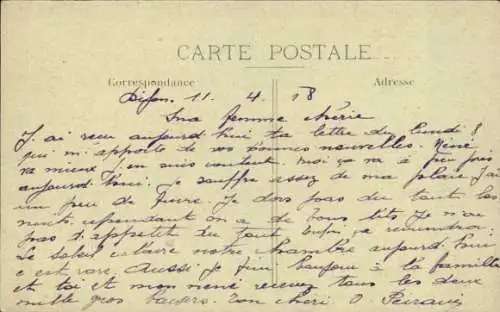 CARTE POSTALE
Correspondance
Adresse
Dijon 11 4 18
Ma femme chérie
J'ai reçu aujourd'hui ta lettre du lundi 8
qui m'apporte de vos bonnes nouvelles. Néné
va mieux j'en suis content. moi ça va à peu près
aujourd'hui. je souffre assez de ma plaie J'ai
un peu de fièvre. Je dors pas du tout les
nuits cependant on a de bons lits Je n'ai
pas d'appétit du tout Enfin ça reviendra.
Le soleil éclaire notre chambre aujourd'hui
c'est rare. Aussi je bonjour à la famille
et toi et mon néné recevez tous les deux
mille gros baisers. Ton chéri